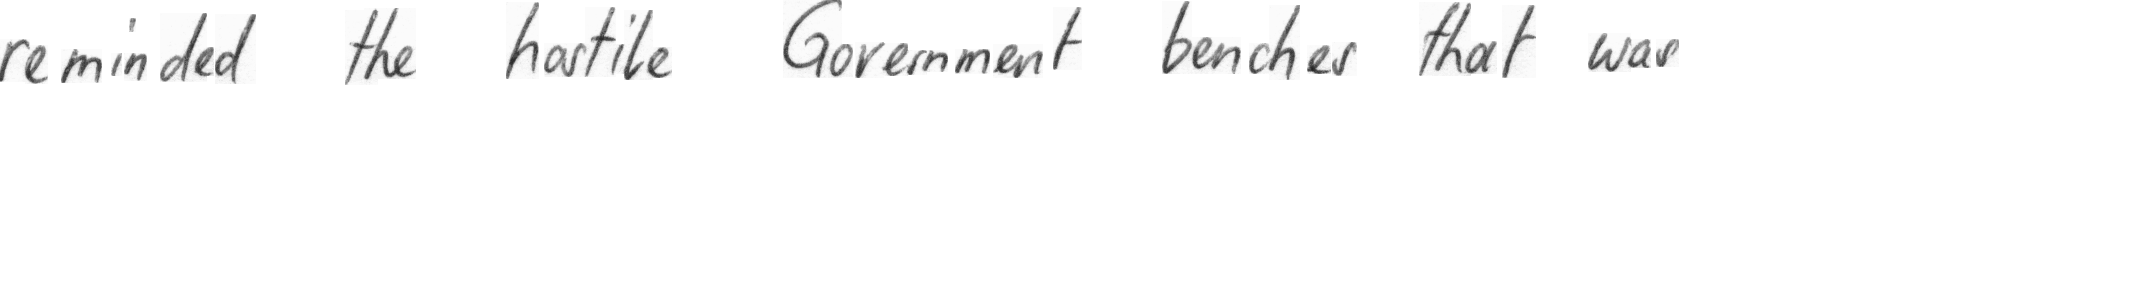 reminded the hostile Government benches that was